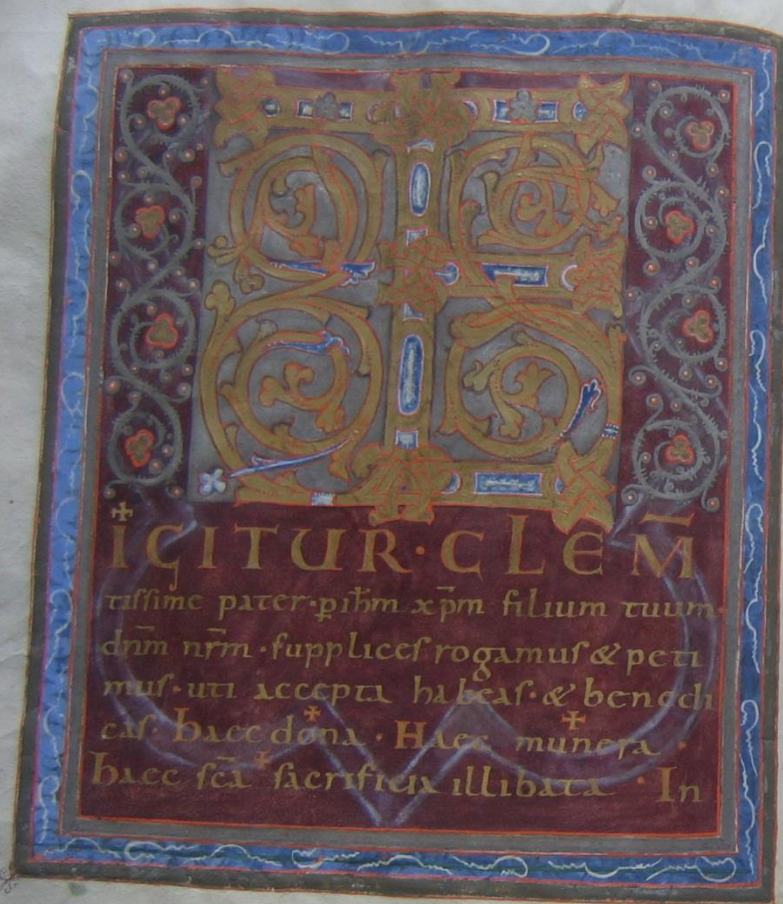 TE
IGITUR · CLEM̄
tissime pater · p̱ ih̄m xp̄m filium tuum
dn̄m nr̄m · supplices rogamus & peti
mus · uti accepta habeas · & benedi
cas · haec dona · Haec munera ·
haec sc̄a sacrificia illibata · In